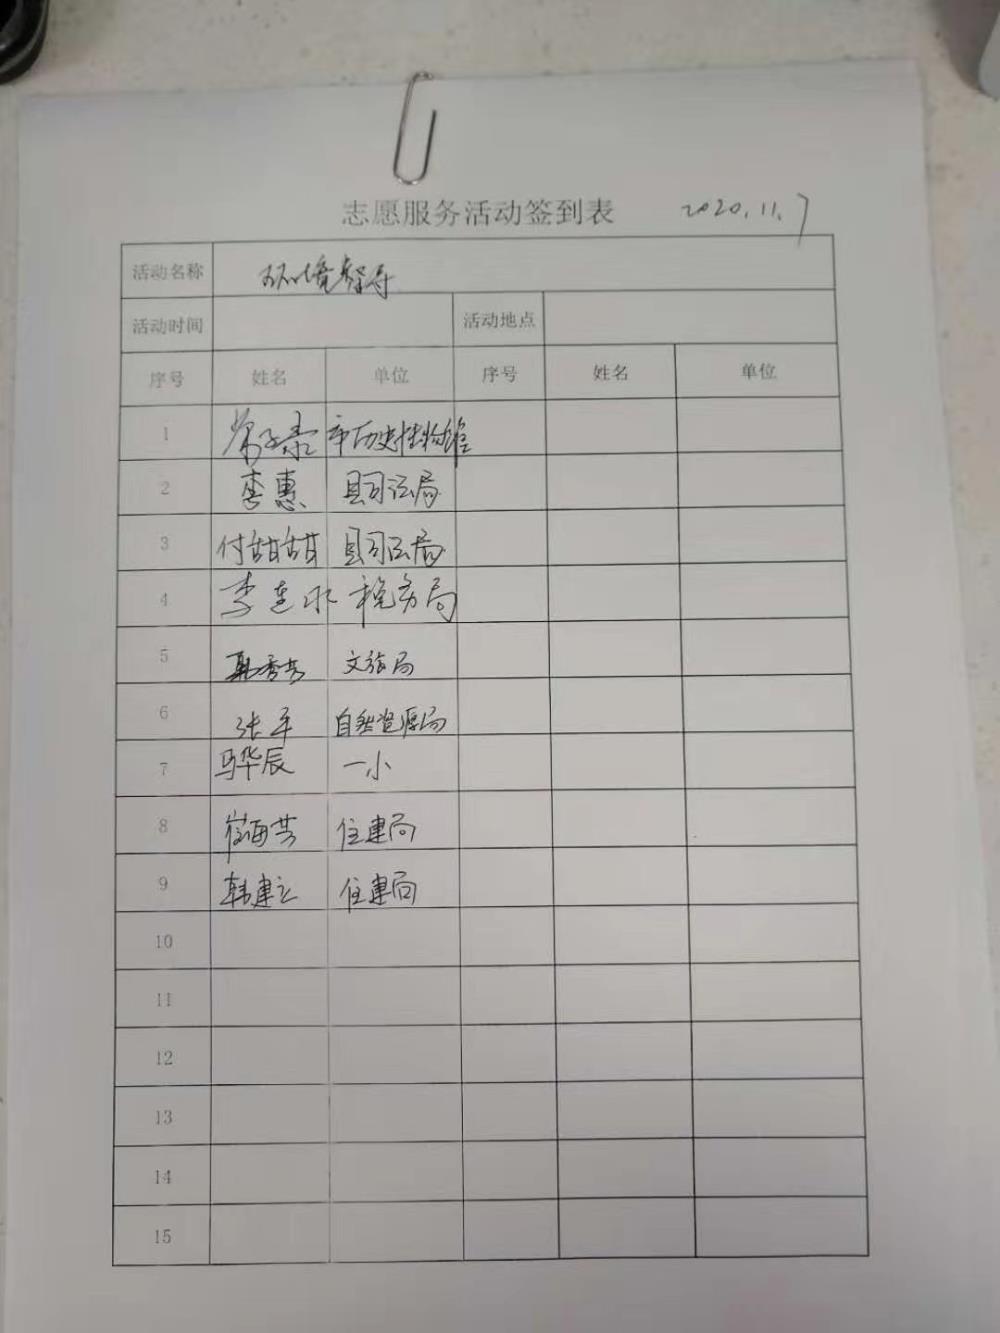 志愿服务活动签到表 2020.11.7
活动名称 环境督导
活动时间 活动地点
序号 姓名 单位 序号 姓名 单位
1
2 李惠 县司法局
3 付甜甜 县司法局
4 李连水 税务局
5 文旅局
6 张平 自然资源局
7 马华辰 一小
8 崔海芳 住建局
9 韩建立 住建局
10
11
12
13
14
15